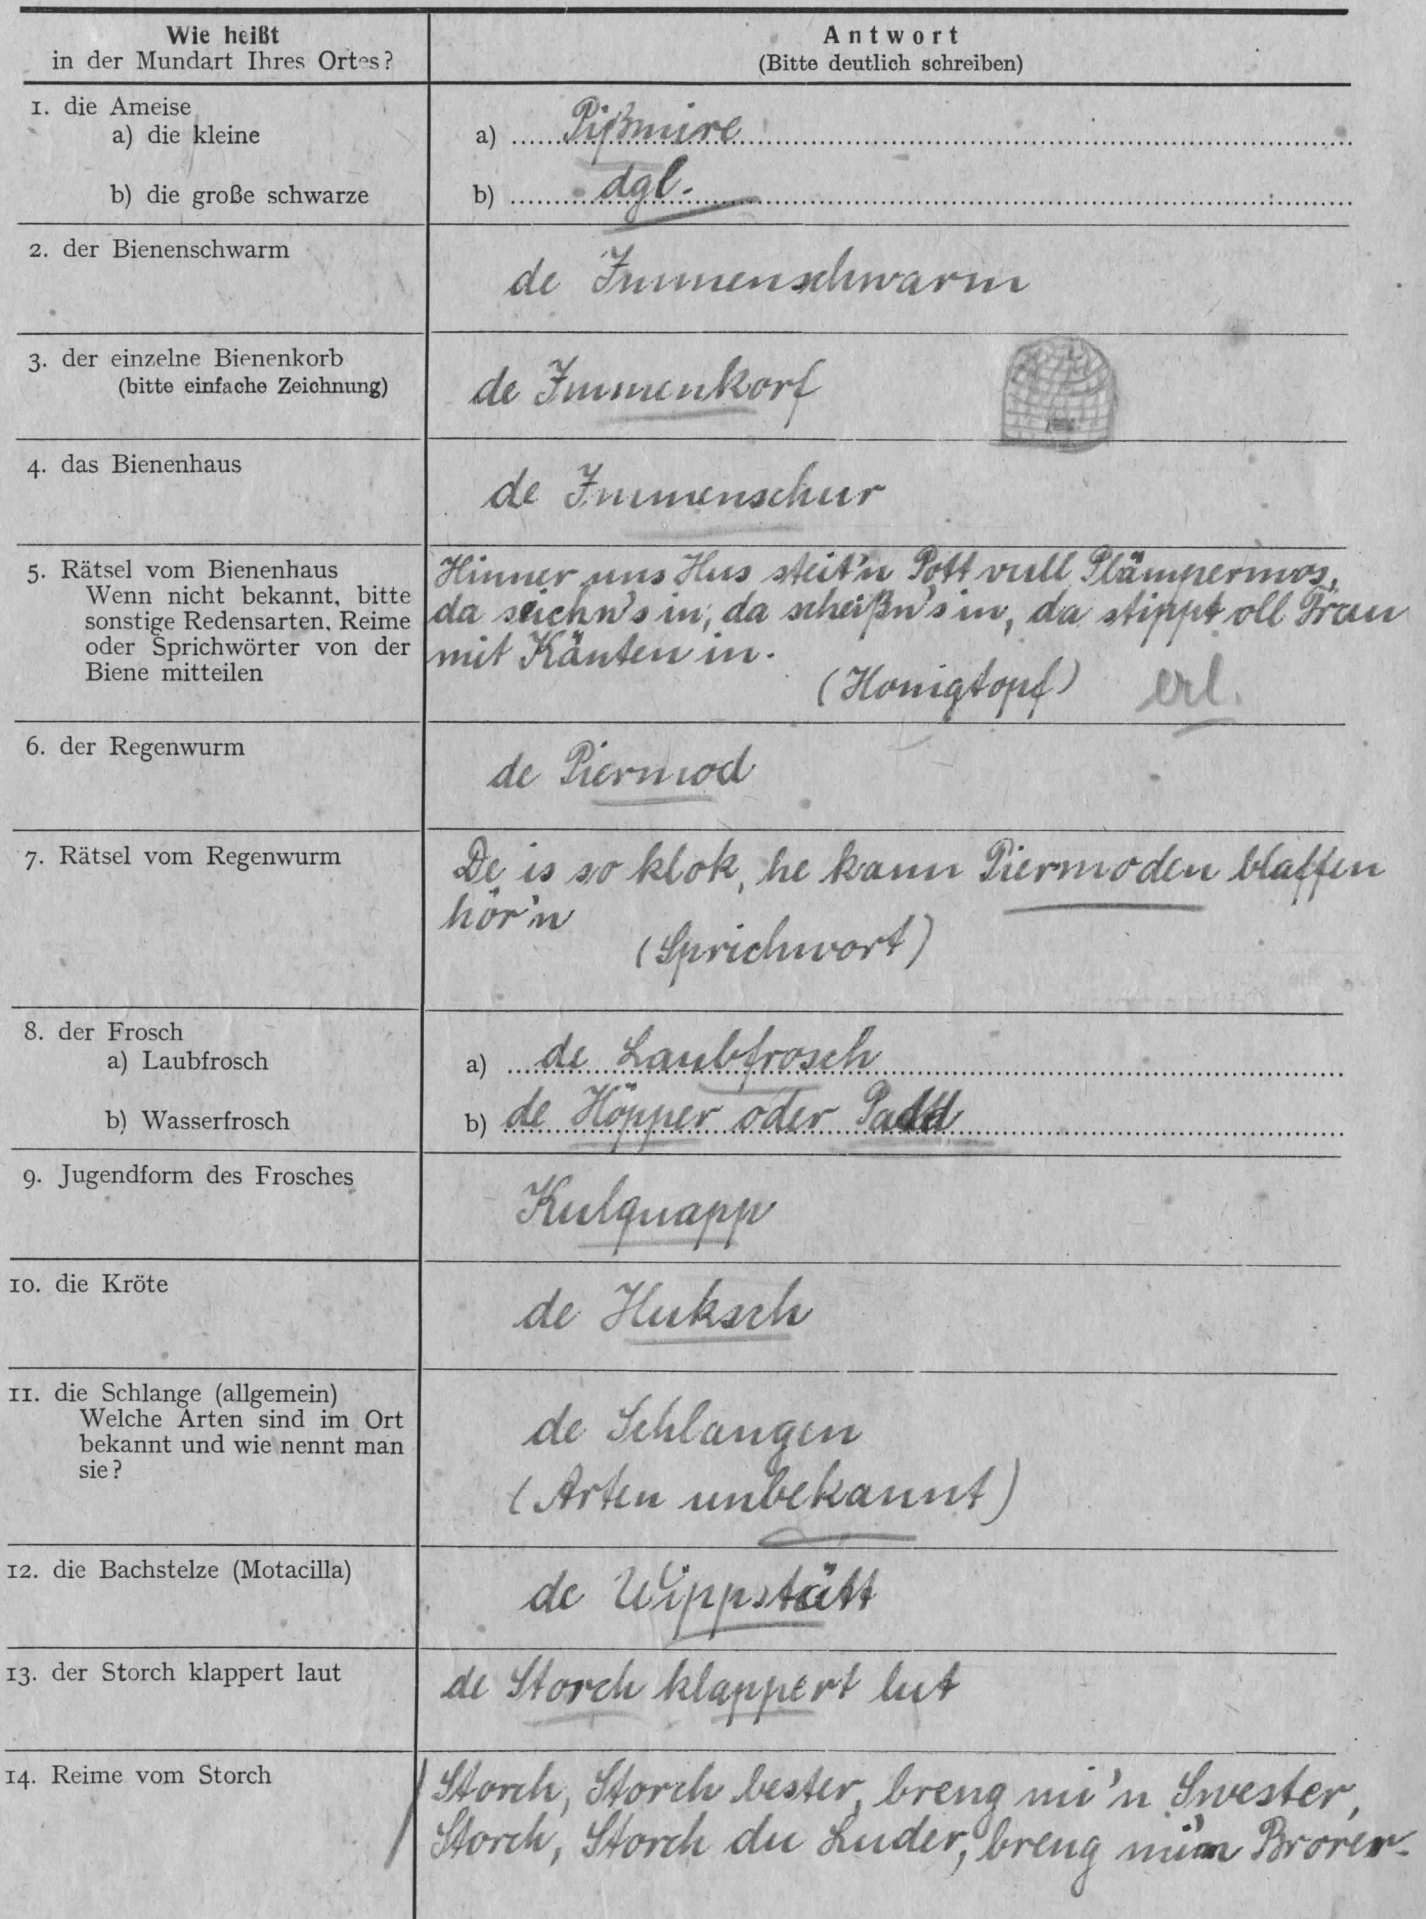 Wie heißt
in der Mundart Ihres Ortes?
Antwort
(Bitte deutlich schreiben)
1. die Ameise
a) die kleine
a) Pißmire
b) die große schwarze
b) dgl.
2. der Bienenschwarm
de Immenschwarm
3. der einzelne Bienenkorb
(bitte einfache Zeichnung)
de Immenkorf
4. das Bienenhaus
de Immenschur
5. Rätsel vom Bienenhaus
Wenn nicht bekannt, bitte
sonstige Redensarten, Reime
oder Sprichwörter von der
Biene mitteilen
Hinner uns Hus steit'n Pott vull Plämpermos,
da seichn's in, da scheißn's in, da stippt oll Frau
mit Känten in.
(Honigtopf) erl.
6. der Regenwurm
de Piermod
7. Rätsel vom Regenwurm
De is so klok, he kann Piermoden blaffen
hör'n
(Sprichwort)
8. der Frosch
a) Laubfrosch
a) de Laubfrosch
b) Wasserfrosch
b) de Höpper oder Padd
9. Jugendform des Frosches
Kulquapp
10. die Kröte
de Huksch
11. die Schlange (allgemein)
Welche Arten sind im Ort
bekannt und wie nennt man
sie?
de Schlangen
(Arten unbekannt)
12. die Bachstelze (Motacilla)
de Wippstätt
13. der Storch klappert laut
de Storch klappert lut
14. Reime vom Storch
Storch, Storch bester, breng mi'n Swester,
Storch, Storch du Luder, breng mi'n Brorer.